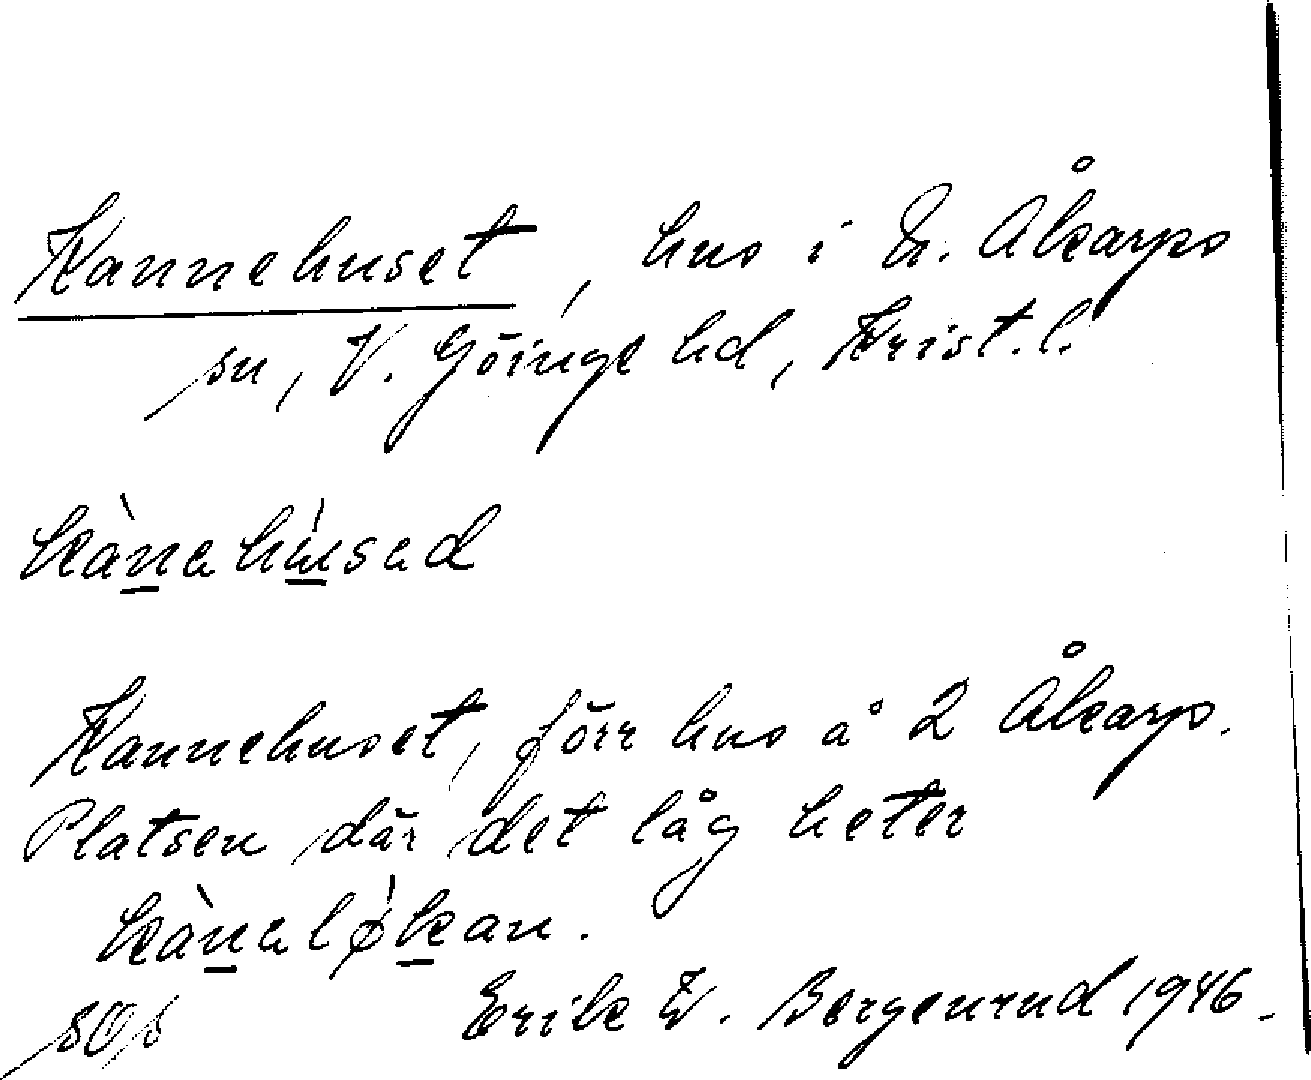 Kannehuset, hus i N. Åkarps
sn, V. Göinge hd, Krist. l.
kànahúsad
Kannehuset, förr hus å 2 Åkarp.
Platsen där det låg heter
kànaløkan.
Erik W. Bergenrud 1946.